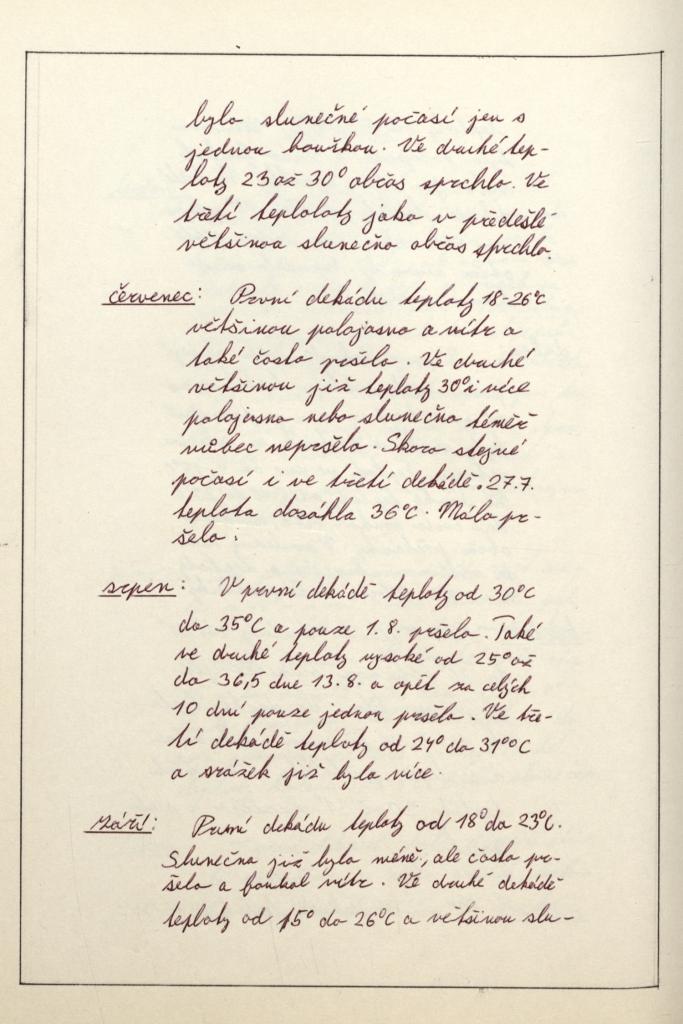 bylo slunečné počasí jen s
jednou bouřkou. Ve druhé tep-
loty 23 až 30° občas sprchlo. Ve
třetí teploloty jako v předešlé
většinou slunečno občas sprchlo.
červenec: První dekádu teploty 18-26°C
většinou polojasno a vítr a
také často pršelo. Ve druhé
většinou již teploty 30° i více
polojasno nebo slunečno téměř
vůbec nepršelo. Skoro stejné
počasí i ve třetí dekádě. 27.7.
teplota dosáhla 36°C. Málo pr-
šelo.
srpen: V první dekádě teploty od 30°C
do 35°C a pouze 1. 8. pršelo. Také
ve druhé teploty vysoké od 25° až
do 36,5 dne 13. 8. a opět za celých
10 dní pouze jednou pršelo. Ve tře-
tí dekádě teploty od 24° do 31°C
a srážek již bylo více.
září: První dekádu teploty od 18° do 23°C.
Slunečna již bylo méně, ale často pr-
šelo a foukal vítr. Ve druhé dekádě
teploty od 15° do 26°C a většinou slu-